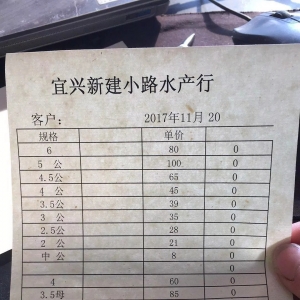 宜兴新建小路水产行
客户： 2017年11月 20
规格 单价
6 80 0
5 公 100 0
4.5公 65 0
4 公 45 0
3.5公 39 0
3 公 35 0
2.5公 28 0
2 公 21 0
中 公 8 0
0
4 60 0
3.5母 85 0